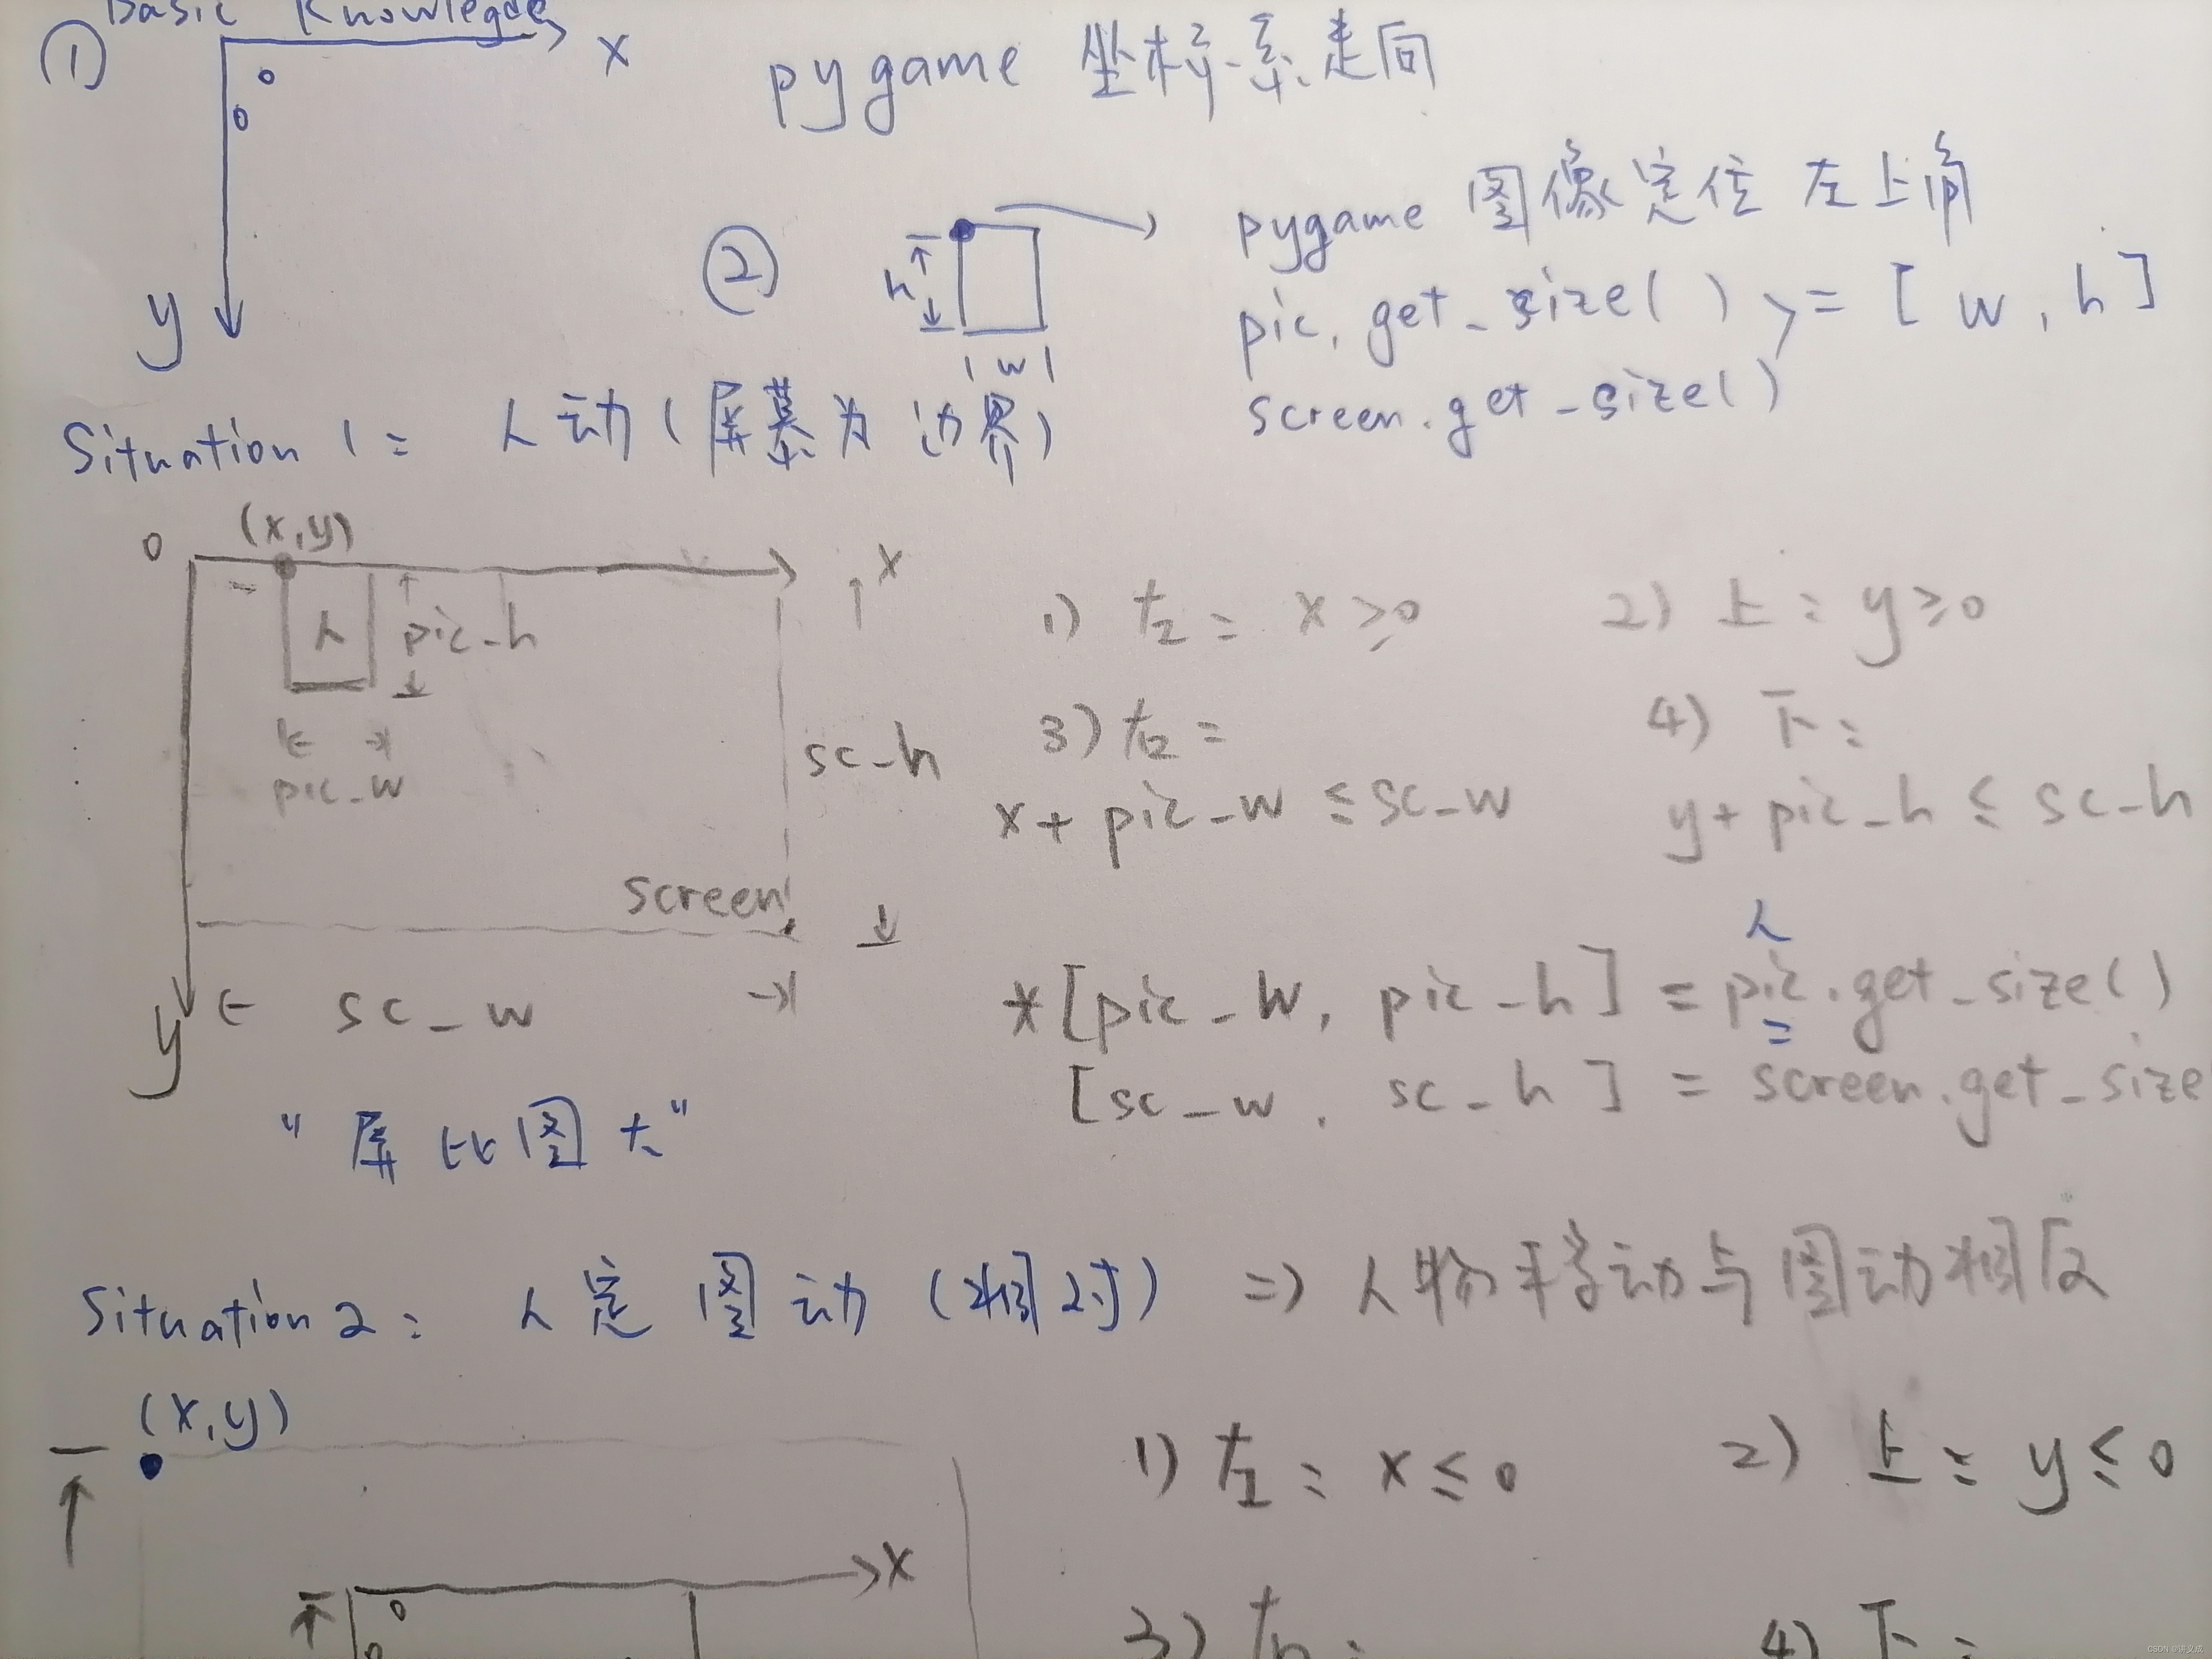 Basic Knowlegde
① x pygame 坐标系走向
0
0
y
② h w pygame 图像定位 左上角
pic.get_size() >= [w, h]
screen.get_size()
Situation 1: 人动(屏幕为边界)
0 (x,y) x
人 pic_h
pic_w
sc_h
screen
y sc_w
1) 左: x≥0 2) 上: y≥0
3) 右: 4) 下:
x+pic_w ≤ sc_w y+pic_h ≤ sc_h
人
*[pic_w, pic_h] = pic.get_size()
[sc_w, sc_h] = screen.get_size
"屏比图大"
Situation 2: 人定 图动 (相对) => 人物移动与图动相反
(x,y)
1) 左: x≤0 2) 上: y≤0
x
0
0
3) 右: 4) 下: